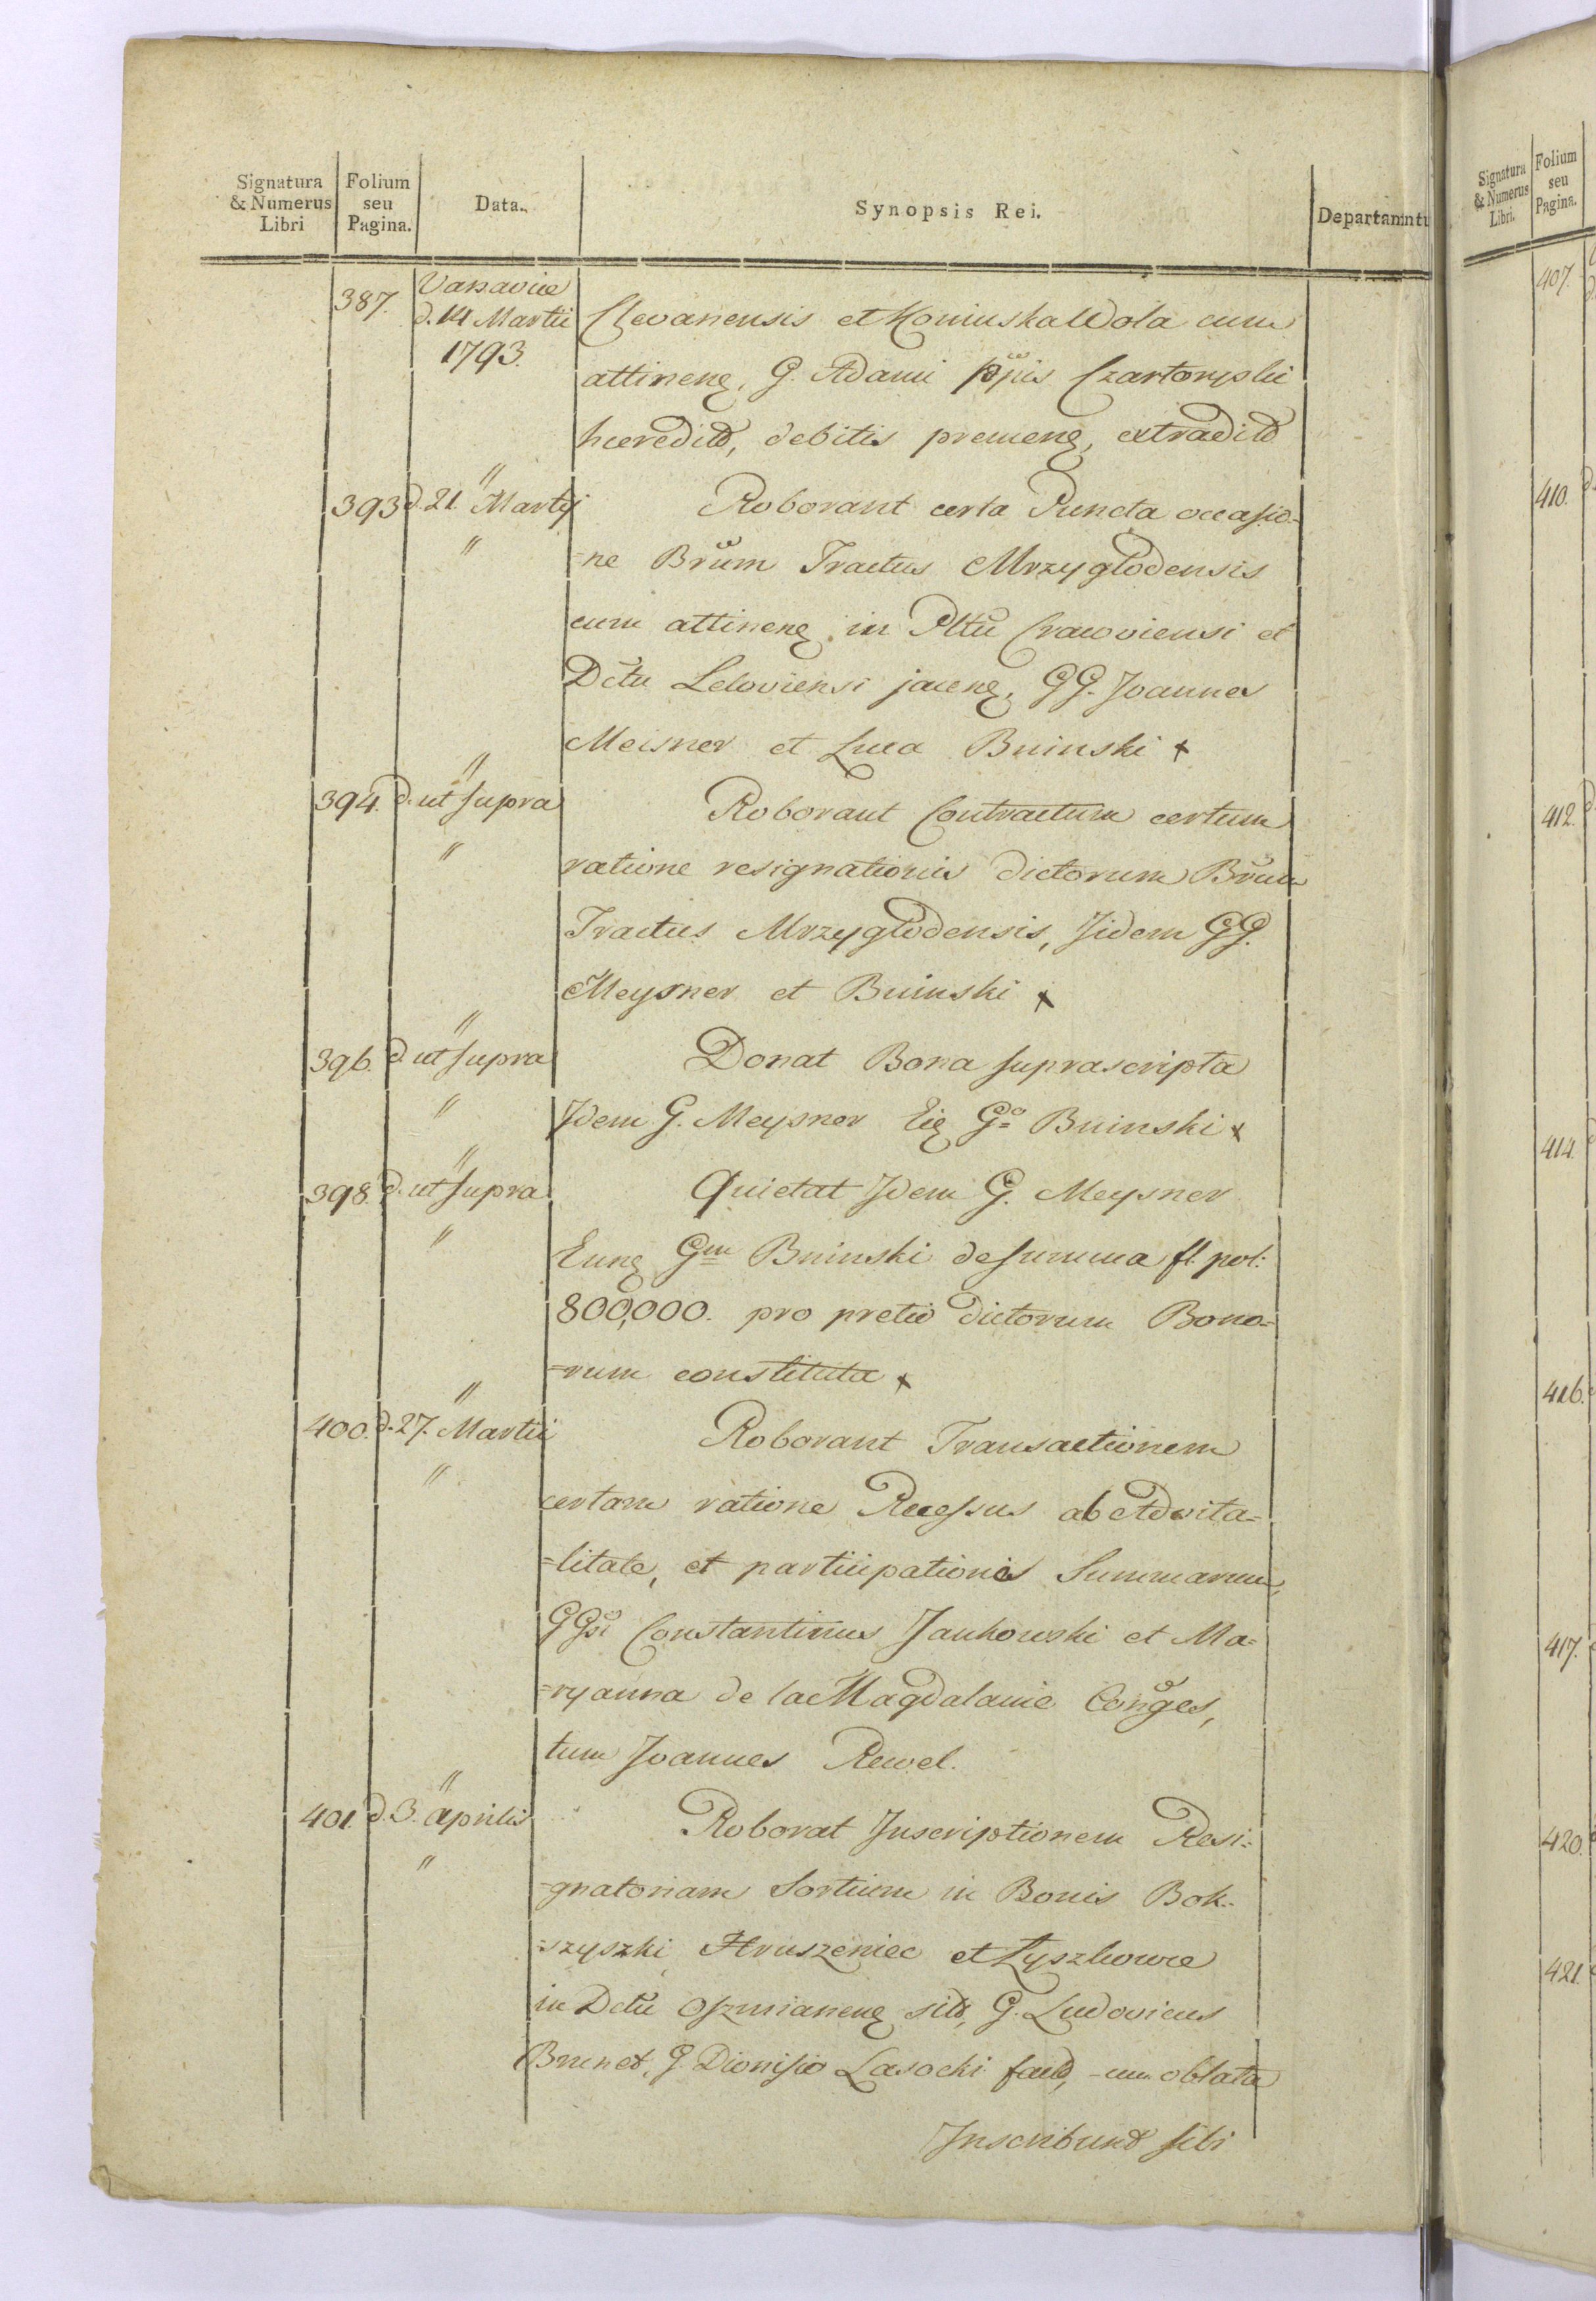 Signatura & Numerus Libri
Folium seu Pagina.
Data.
Synopsis Rei.
Departamntu
387.
Varsaviæ
d. 14 Martii
1793.
Clevanensis et Koniuska Wola cum
attinenꝫ, G. Adami Ppis Czartoryski
hæredit, debitis premenꝫ, extradit
393 d. 21. Martij
" Roborant certa Puncta occasio-
=ne Brum Tractus Mrzyglodensis
cum attinenꝫ in Pltu Cracoviensi et
Dctu Leloviensi jacenꝫ, GG. Joannes
Meisner et Luca Bninski x
394. d. ut supra
" Roborant Contractum certum
ratione resignationis dictorum Brum
Tractus Mrzyglodensis, Jidem GG.
Meysner et Bninski x
396. d ut supra
" Donat Bona suprascripta
Idem G. Meysner Eiꝫ Go Bninski x
398. d. ut supra
" Quietat Idem G. Meysner
Eunꝫ Gm Bninski de summa fl. pol:
800,000. pro pretio dictorum Bono=
=rum constituta x
400. d. 27. Martii
" Roborant Transactionem
certam ratione Recessus ab Advita=
=litate, et participationis Summarum,
GGsi Constantinus Jankowski et Ma=
=ryanna de la Magdalanie Conges,
tum Joannes Rewel.
401. d. 3. Aprilis
" Roborat Inscriptionem Resi=
=gnatoriam Sortium in Bonis Bok=
=szyszki Hruszeniec et Łyszkowce
in Dctu Oszmianenꝫ sit, G. Ludovicus
Brunet, G Dionisio Lasocki fact, cum oblata
Inscribund sibi
Signatura & Numerus Libri.
Folium seu Pagina.
407.
410.
412.
414.
416.
417.
420.
421.